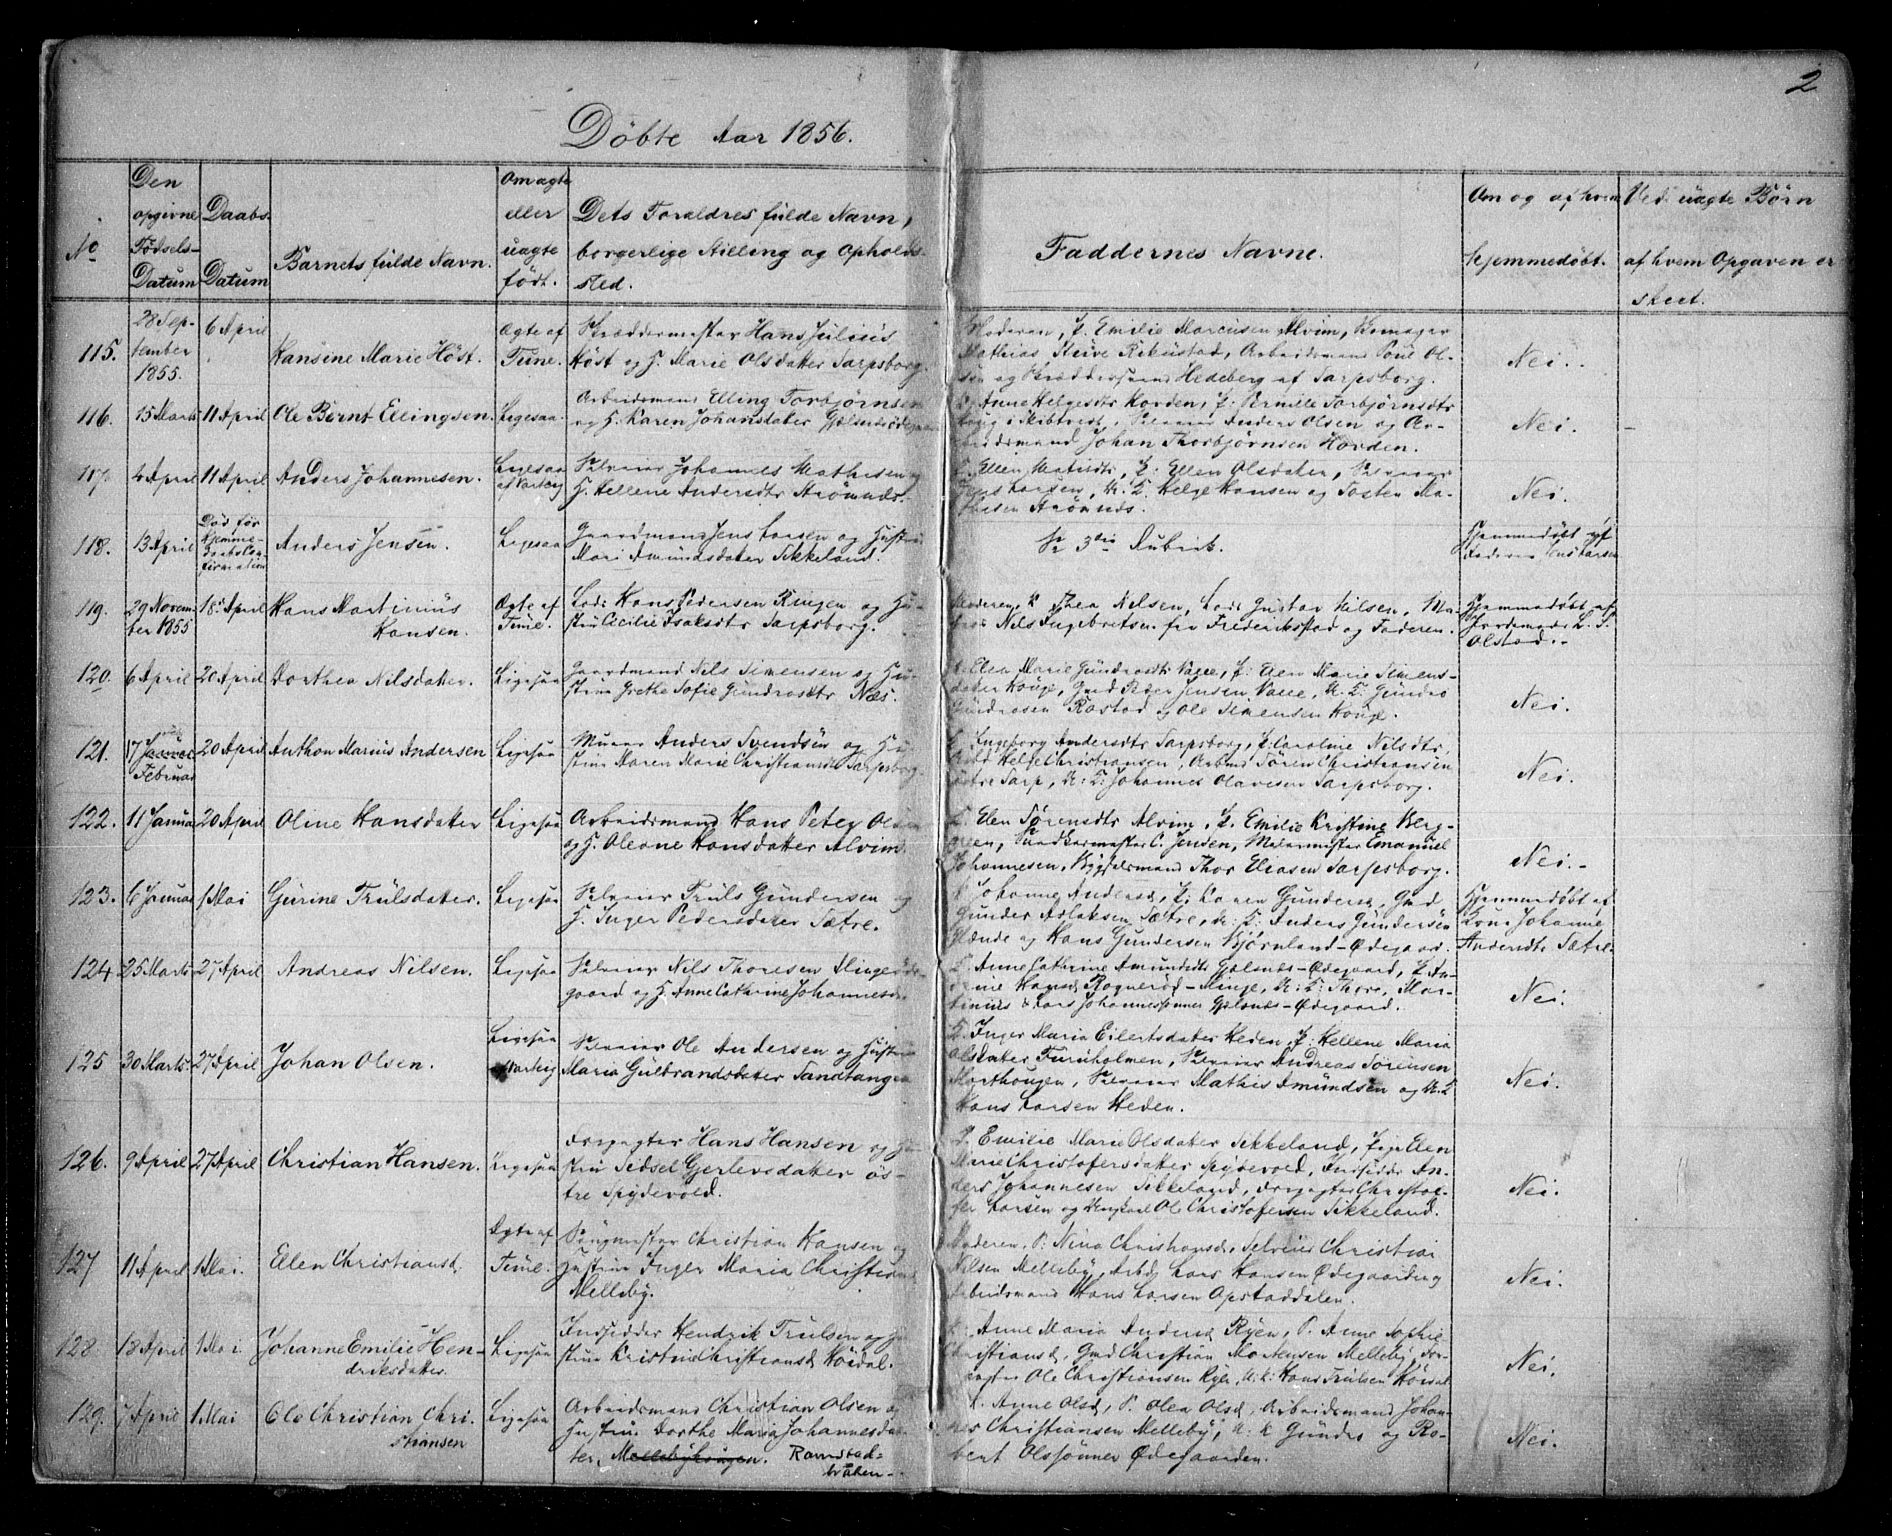 2
Døbte Aar 1856.
No
Den opgivne Fødsels-Datum
Daabs-Datum
Barnets fulde Navn.
Om ægte eller uægte født.
Dets Forældres fulde Navn, borgerlige Stilling og Opholdssted.
Faddernes Navne.
Om og af hvem hjemmedøbt.
Ved uægte Børn af hvem Opgaven er skeet.
115. 28 September 1855. 6 April Hansine Marie Høst. Ægte af Tune.
Skræddermester Hans Julius
Høst og H. Marie Olsdatter Sarpsborg.
Moderen, P. Emilie Marcusen Alvim,
Mathias Arbeidsmand Poul Ol-
sen og Hedeberg af Sarpsborg.
Nei.
116. 15 Marts 11 April Ole Bernt Ellingsen. Ligesaa.
Arbeidsmand Elling Torbjørnsen
og H. Karen Johansdatter
K. Anne Helgesdtr Hovden, P. Pernille Torbjørnsdtr
i Skibtvedt, Anders Olsen og Ar-
beidsmand Johan Thorbjørnsen Hovden.
Nei.
117. 4 April 11 April Anders Johannesen. Ligesaa af Varteig
Selveier Johannes Mathisen og
H. Hellene Andersdtr
Ellen P. Ellen Olsdatter, Selveier
Jens Larsen, U. K. Helge Hansen og Tosten Ma-
thisen
Nei.
118. 13 April Død før Hjemmedaabs Confirmation Anders Jensen. Ligesaa
Gaardmand Jens Larsen og Hustru
Mari Amundsdatter Tikkeland.
3die Rubrik.
Hjemmedøbt af
Faderen Jens Larsen
119. 29 November 1855 18. April Hans Martinius Hansen. Ægte af Tune.
Lods Hans Pedersen Ringen og Hu-
stru Cecilie Isaksdtr Sarpsborg.
Moderen, P. Thea Nilsen, Lods Gustav Nilsen, Ma-
Nils Ingebretsen fra Frederiksstad og Faderen.
Hjemmedøbt af
Jordemoder
Olstad.
120. 6 April 20 April Dorthea Nilsdatter. Ligesaa
Gaardmand Nils Simensen og Hu-
stru Grethe Sofie Gundrosdtr Næs.
K. Elea Marie Gundrosdtr Valle, P. Elen Marie Simens-
datter Houge, Gmd Peder Jensen Valle, U. K. Gundro
Gundrosen Rostad og Ole Simensen Houge.
Nei.
121. 17 Januar Februar 20 April Anthon Marius Andersen Ligesaa
Murer Anders Svendsen og Hu-
stru Maren Marie Christiansdtr Sarpsborg.
K. Ingeborg Andersdtr Sarpsborg, P. Caroline Nilsdtr,
Helge Christiansen, Arbmd Søren Christiansen
Søtre Sarp, U. K. Johannes Olavesen Sarpsborg.
Nei.
122. 11 Januar 20 April Oline Hansdatter Ligesaa
Arbeidsmand Hans Peter Olsen
og H. Oleane Hansdatter Alvim.
K. Elen Sørensdtr Alvim, P. Emilie Kristine Berg-
green, Snedkermester C. Jensen, Malermester Emanuel
Johannesen, Bygselmand Thor Eliasen Sarpsborg.
Nei.
123. 6 Januar 1 Mai Gurine Trulsdatter. Ligesaa
Selveier Truls Gundersen og
H. Inger Pedersdatter Sætre.
K. Johanne Andersd, P. Karen Gundersd, Gmd
Gunder Aslaksen Sætre, U. K. Anders Gundersen
og Hans Gundersen Bjørnland-Ødegaard.
Hjemmedøbt af
Kone Johanne
Andersdtr Sætre.
124 25 Marts 27 April Andreas Nilsen. Ligesaa
Selveier Nils Thoresen Mingeøde-
gaard og H. Anne Cathrine Johannesdtr
K. Anne Cathrine Amundsdtr Ødegaard, P. An-
drine Hansd Minge, U. K. Thore, Mar-
tinius & Lars Johannessønner Ødegaard.
Nei.
125 30 Marts 27 April Johan Olsen. Ligesaa Varteig
Selveier Ole Andersen og Hustru
Maria Gulbrandsdatter Sandtangen
K. Inger Maria Eilertsdatter Heden, P. Hellene Maria
Olsdatter Furuholmen, Selveier Andreas Sørensen
Morthougen, Selveier Mathis Amundsen og U. K.
Hans Larsen Heden.
Nei.
126. 9 April 27 April Christian Hansen. Ligesaa
Forpagter Hans Hansen og Hu-
stru Sidsel Gjerlovsdatter øs-
tre Spydevold.
K. Emilie Marie Olsdatter Tikkeland, Pige Elen
Marie Christofersdatter Spydevold, Indsidder An-
ders Johannesen Tikkeland, Forpagter Christof-
fer Larsen og Ungkarl Ole Christofersen Tikkeland.
Nei.
127 11 April 1 Mai. Ellen Christiansd. Ægte af Tune.
Christian Hansen og
Hustru Inger Maria Christiansd
Melleby.
Moderen, P. Nina Christiansd, Selveier Christian
Nilsen Melleby, Arbd Lars Hansen Ødegaarden og
Arbeidsmand Hans Larsen Opstaddalen.
Nei.
128. 18 April 1 Mai. Johanne Emilie Hendriksdatter. Ligesaa
Indsidder Hendrik Trulsen og Hu-
stru Kristine Christiansd Høidal.
K. Anne Maria Andersd Ryen, P. Anne Sophie
Christiansd, Gmd Christian Mortensen Melleby, For-
pagter Ole Christiansen Ryen, U. K. Hans Trulsen Høidal
Nei.
129. 7 April 1 Mai Ole Christian Christiansen Ligesaa
Arbeidsmand Christian Olsen og
Hustru Dorthe Maria Johannesdat-
ter, Mellebyhougen. Ramstad-
bråten
K. Anne Olsd, P. Olea Olsd, Arbeidsmand Johan-
nes Christiansen Melleby, U. K. Gundro og Ro-
bert Olssønner Ødegaarden.
Nei.